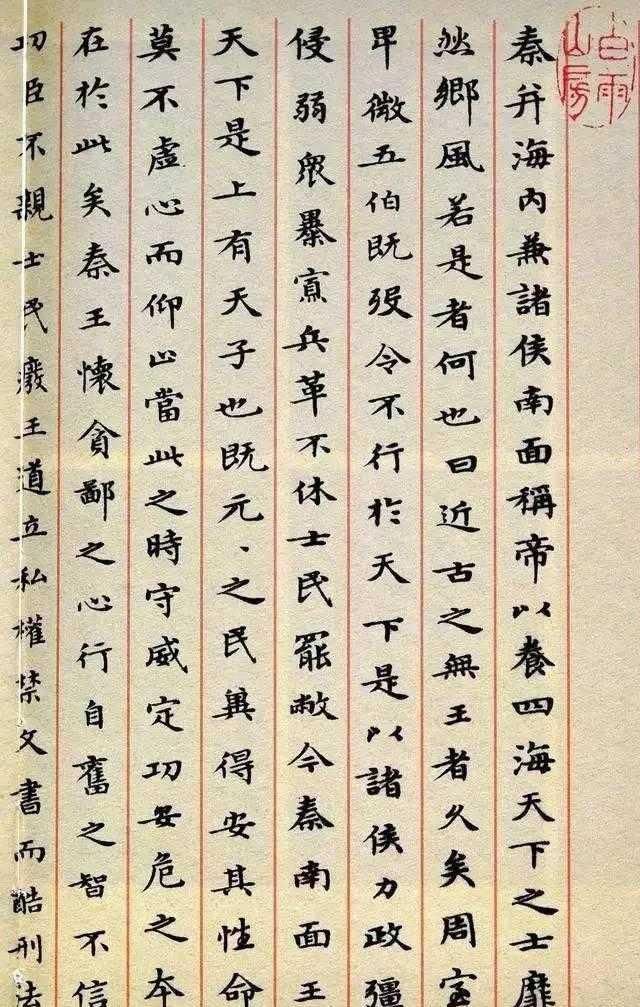 白雨山房
秦并海内兼諸侯南面稱帝以養四海天下之士靡
然鄉風若是者何也曰近古之無王者久矣周室
卑微五伯既歿令不行於天下是以諸侯力政彊
侵弱眾暴寡兵革不休士民罷敝今秦南面王
天下是上有天子也既元、之民兾得安其性命
莫不虛心而仰上當此之時守威定功安危之本
在於此矣秦王懷貪鄙之心行自奮之智不信
功臣不親士民廢王道立私權禁文書而酷刑法